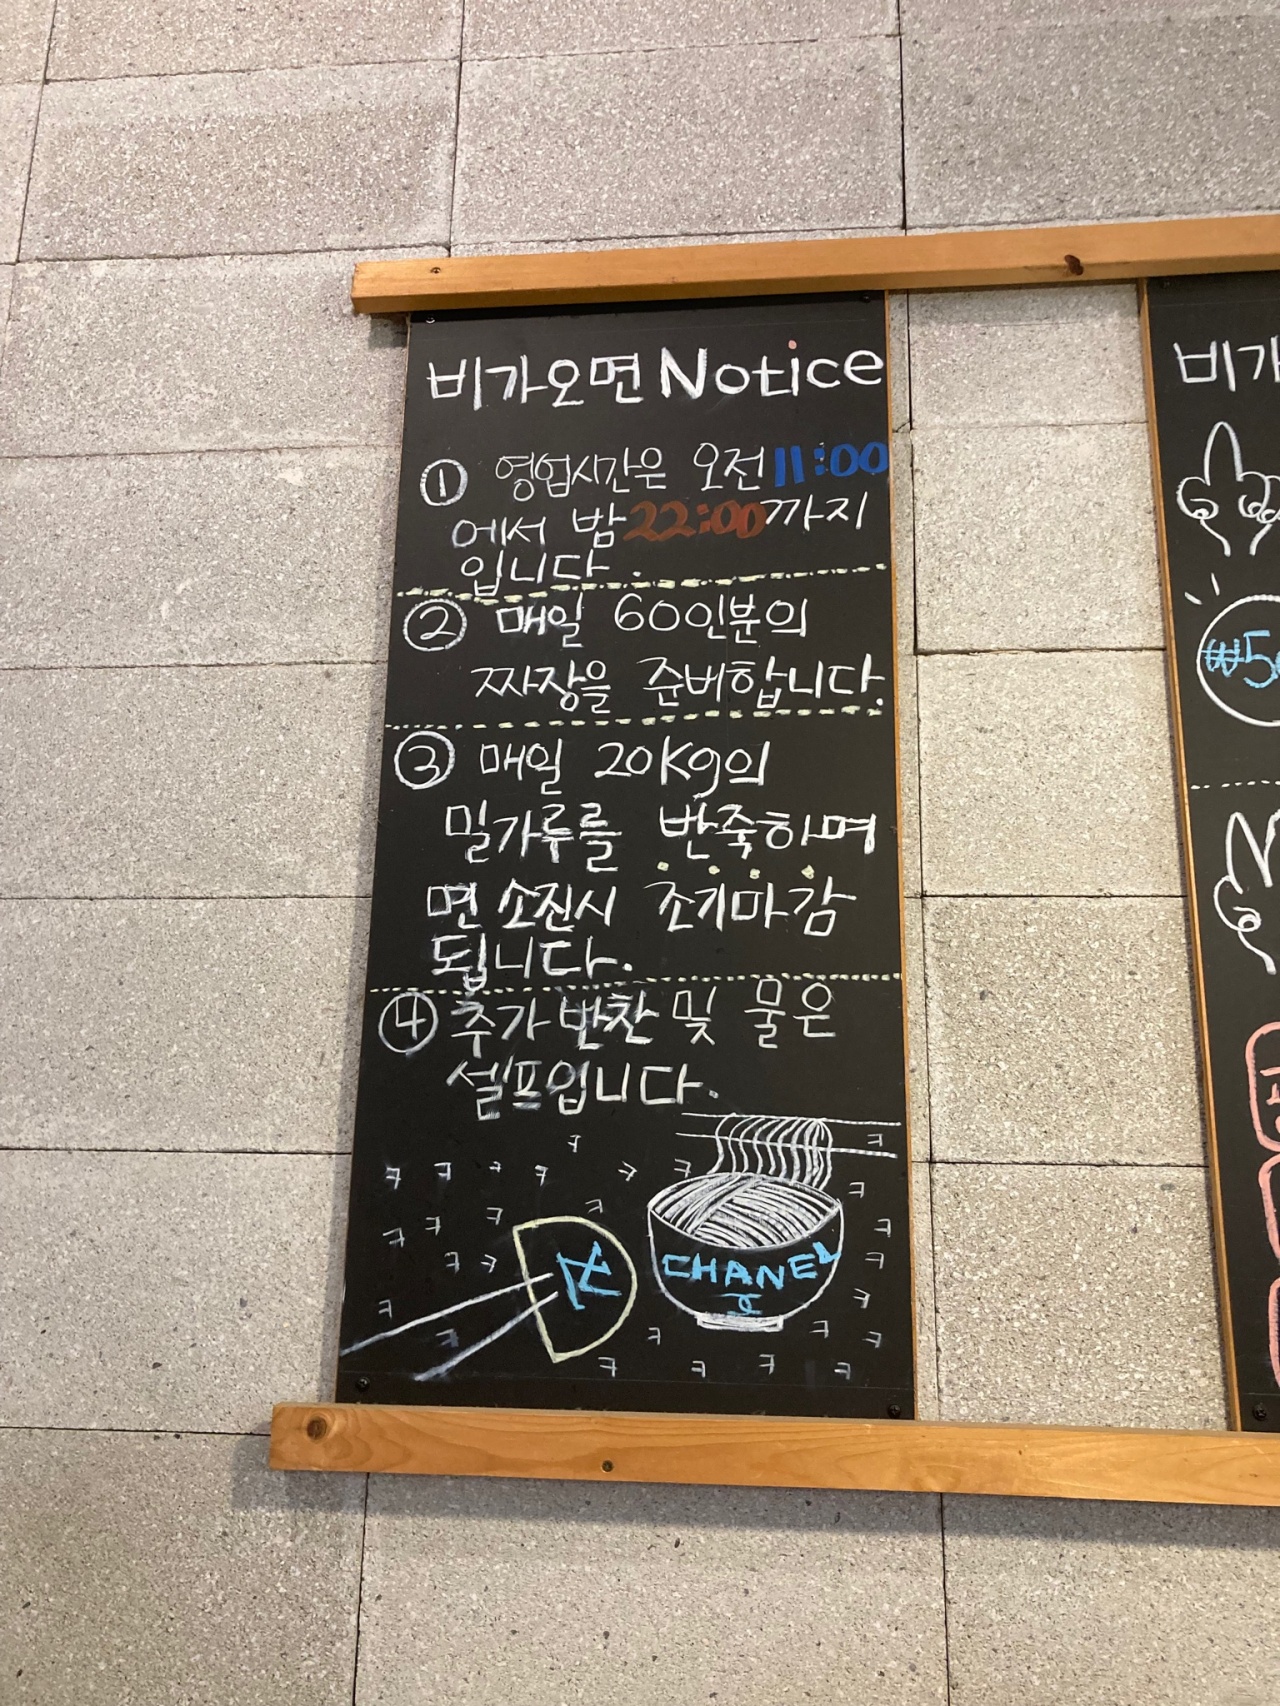 비가오면 Notice
① 영업시간은 오전 11:00
에서 밤 22:00까지
입니다.
② 매일 60인분의
짜장을 준비합니다.
③ 매일 20Kg의
밀가루를 반죽하며
면 소진시 조기마감
됩니다.
④ 추가 반찬 및 물은
셀프입니다.
ㅋ
ㅋ ㅋ ㅋ ㅋ ㅋ ㅋ ㅋ
ㅋ ㅋ ㅋ ㅋ ㅋ ㅋ
ㅋ ㅋ ㅋ
CHANEL
ㅋ ㅋ ㅋ ㅋ ㅋ ㅋ
ㅋ ㅋ ㅋ ㅋ
비가
₩5